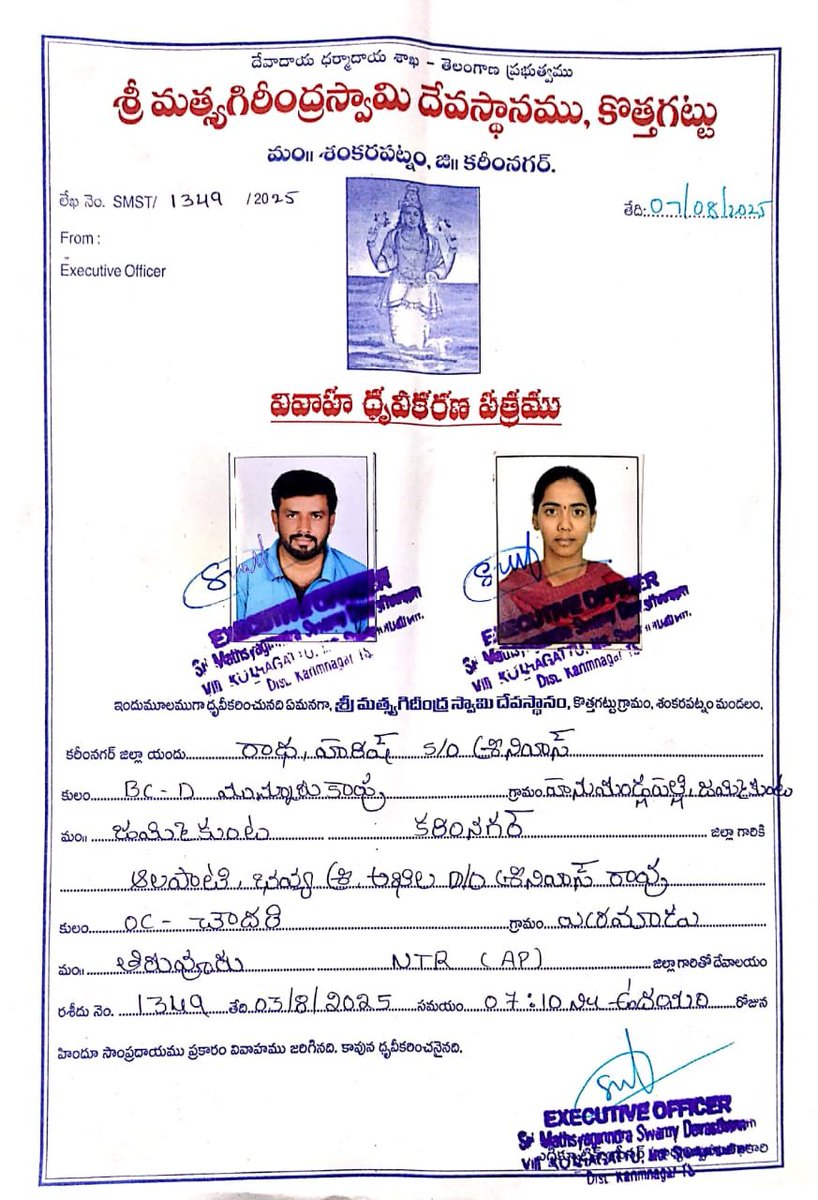 దేవాదాయ ధర్మాదాయ శాఖ - తెలంగాణ ప్రభుత్వము
శ్రీ మత్స్యగిరీంద్రస్వామి దేవస్థానము, కొత్తగట్టు
మం॥ శంకరపట్నం, జి॥ కరీంనగర్.
లేఖ నెం. SMST/ 1349 /2025
తేది: 07/08/2025
From :
Executive Officer
వివాహ ధృవీకరణ పత్రము
EXECUTIVE OFFICER
Sri Mathsyagirindra Swamy Devasthanam
Vill KOTHAGATTU,
Dist. Karimnagar TS
EXECUTIVE OFFICER
Sri Mathsyagirindra Swamy Devasthanam
Vill KOTHAGATTU,
Dist. Karimnagar TS
ఇందుమూలముగా ధృవీకరించునది ఏమనగా, శ్రీ మత్స్యగిరీంద్ర స్వామి దేవస్థానం, కొత్తగట్టు గ్రామం, శంకరపట్నం మండలం.
కరీంనగర్ జిల్లా యందు రాధ, హరీష్ S/O శ్రీనివాస్
కులం BC-D మున్నూరు కాపు గ్రామం హనుమండ్లపల్లి, జమ్మికుంట
మం॥ జమ్మికుంట కరీంనగర్ జిల్లా గారికి
ఆలపాటి, భవ్య శ్రీ, అఖిల D/O శ్రీనివాస్ రావు
కులం OC- చౌదరి గ్రామం
మం॥ తిరువూరు NTR (AP) జిల్లా గారితో దేవాలయం
రశీదు నెం. 1349 తేది 03/8/2025 సమయం 07:10 ఉదయం రోజున
హిందూ సాంప్రదాయము ప్రకారం వివాహము జరిగినది. కావున ధృవీకరించనైనది.
EXECUTIVE OFFICER
Sri Mathsyagirindra Swamy Devasthanam
Vill KOTHAGATTU,
Dist. Karimnagar TS